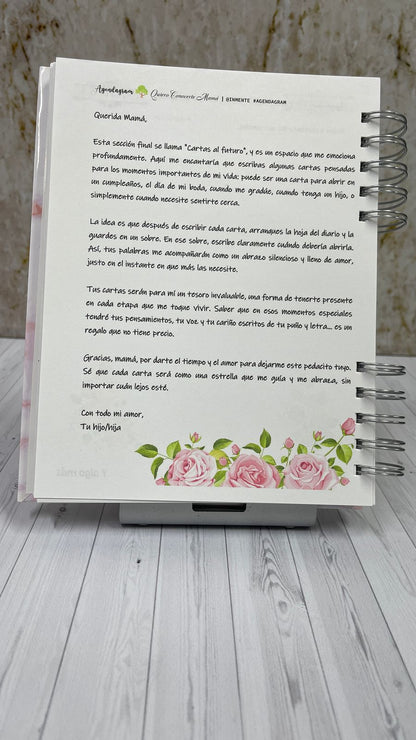 Agendagram Quiero Conocerte Mamá | @INMENTE #AGENDAGRAM
Querida Mamá,
Esta sección final se llama "Cartas al futuro", y es un espacio que me emociona
profundamente. Aquí me encantaría que escribas algunas cartas pensadas
para los momentos importantes de mi vida: puede ser una carta para abrir en
un cumpleaños, el día de mi boda, cuando me gradúe, cuando tenga un hijo, o
simplemente cuando necesite sentirte cerca.
La idea es que después de escribir cada carta, arranques la hoja del diario y la
guardes en un sobre. En ese sobre, escribe claramente cuándo debería abrirla.
Así, tus palabras me acompañarán como un abrazo silencioso y lleno de amor,
justo en el instante en que más las necesite.
Tus cartas serán para mí un tesoro invaluable, una forma de tenerte presente
en cada etapa que me toque vivir. Saber que en esos momentos especiales
tendré tus pensamientos, tu voz y tu cariño escritos de tu puño y letra... es un
regalo que no tiene precio.
Gracias, mamá, por darte el tiempo y el amor para dejarme este pedacito tuyo.
Sé que cada carta será como una estrella que me guía y me abraza, sin
importar cuán lejos esté.
Con todo mi amor,
Tu hijo/hija